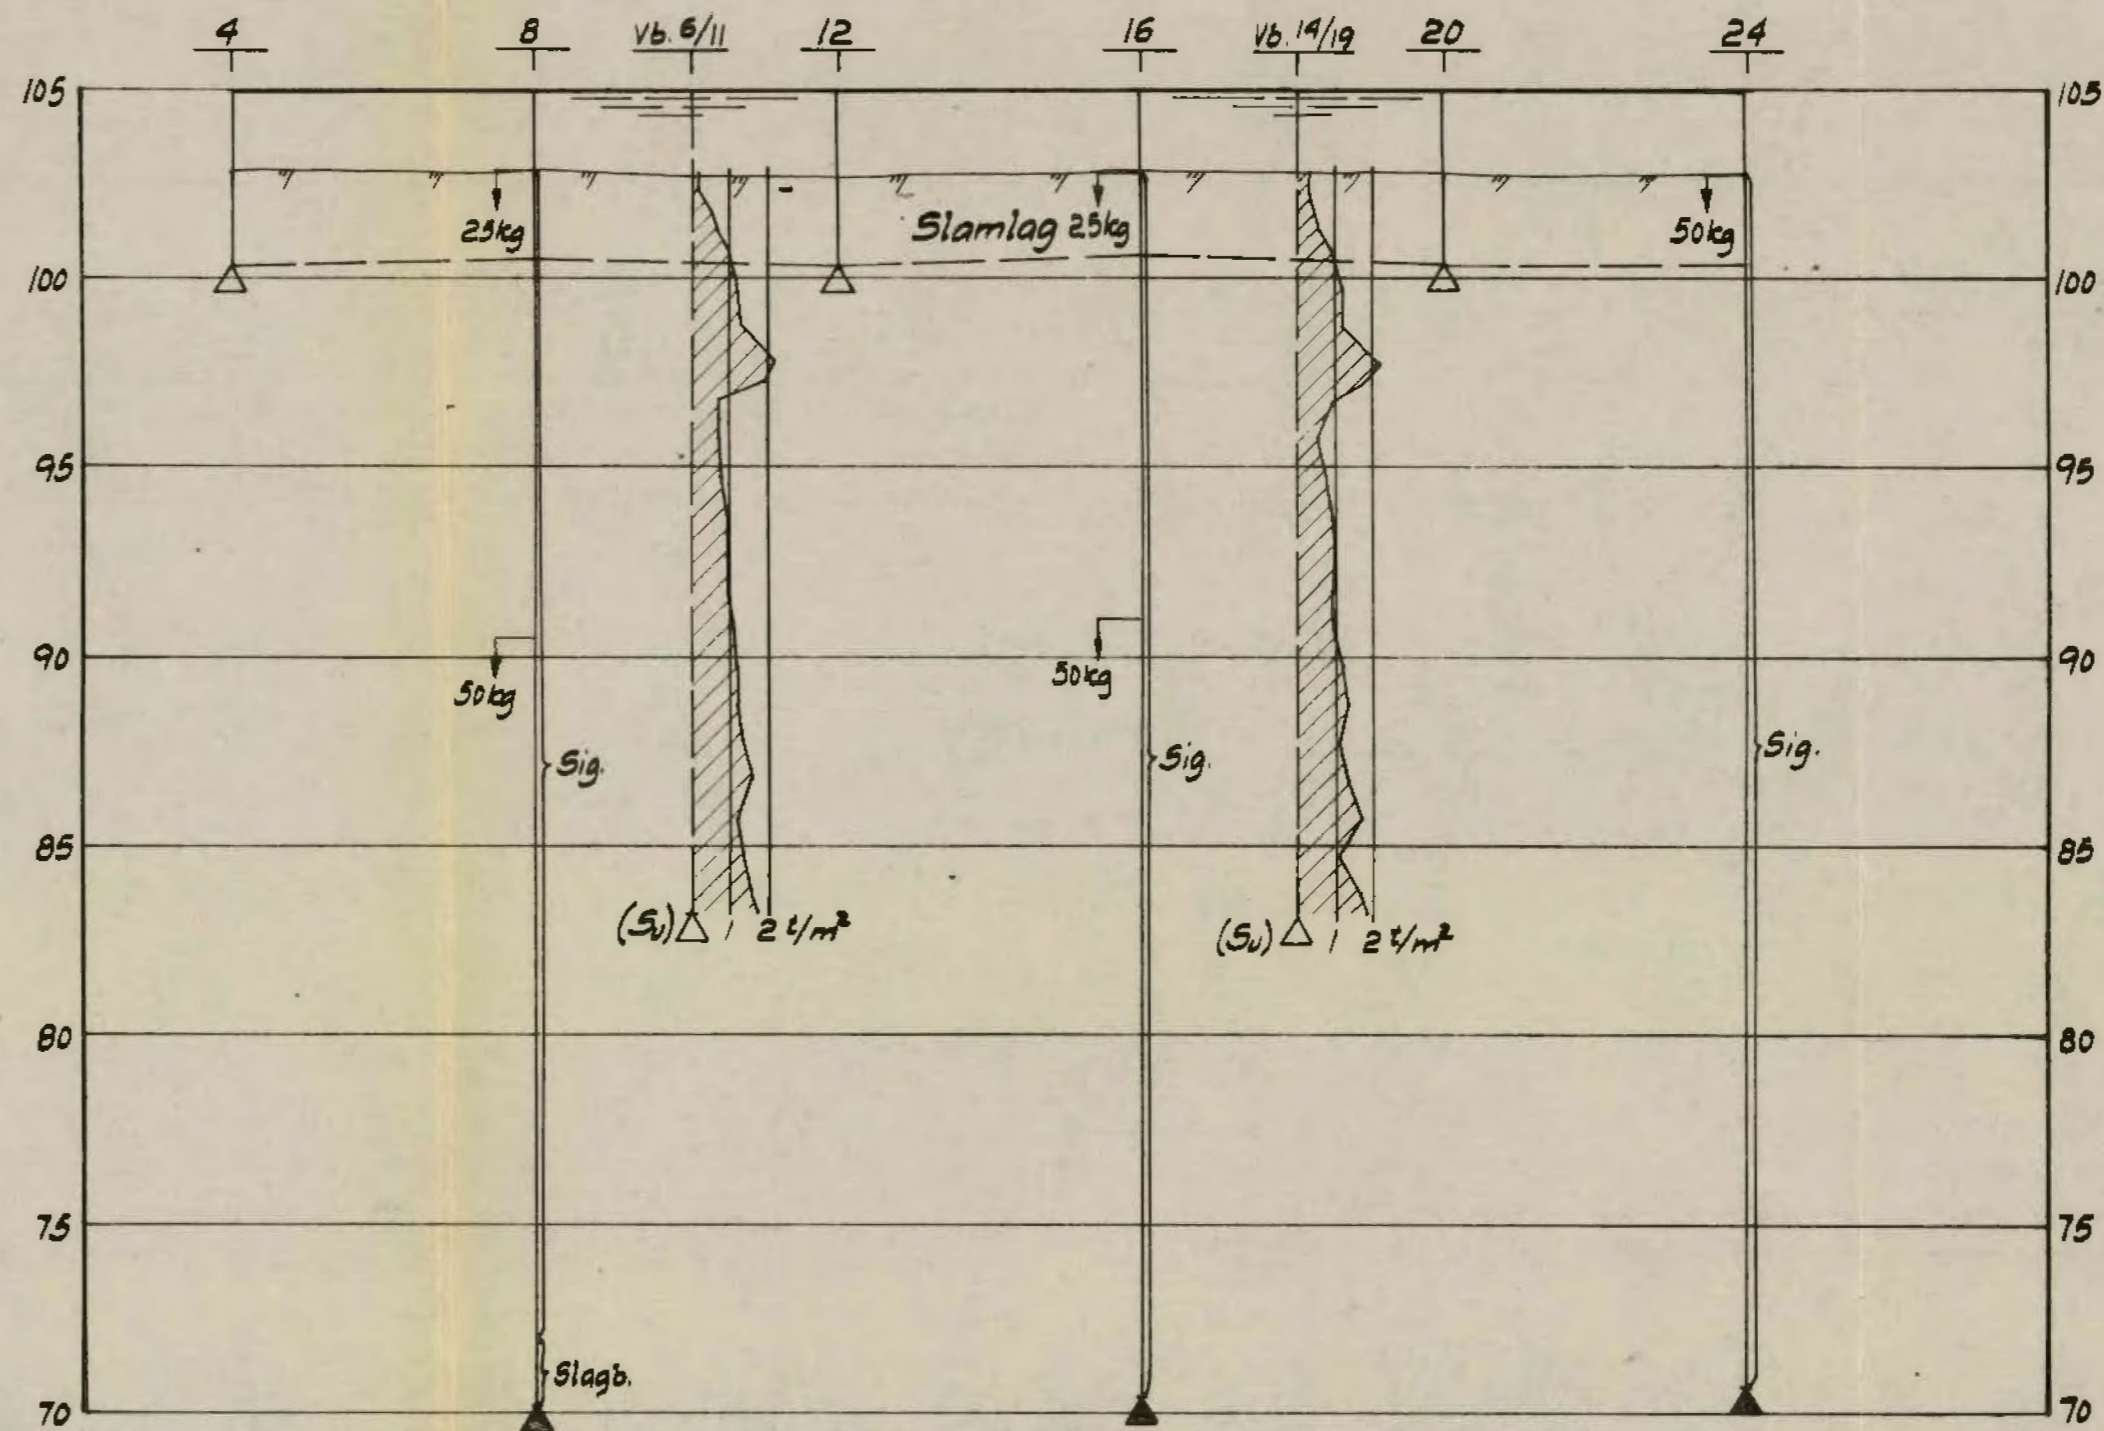 4 8 Vb. 6/11 12 16 Vb. 14/19 20 24
105 105
25kg Slamlag 25kg 50kg
100 100
95 95
90 90
50kg 50kg
Sig. Sig. Sig.
85 85
(Sv) 1 2 t/m² (Sv) 1 2 t/m²
80 80
75 75
Slagb.
70 70